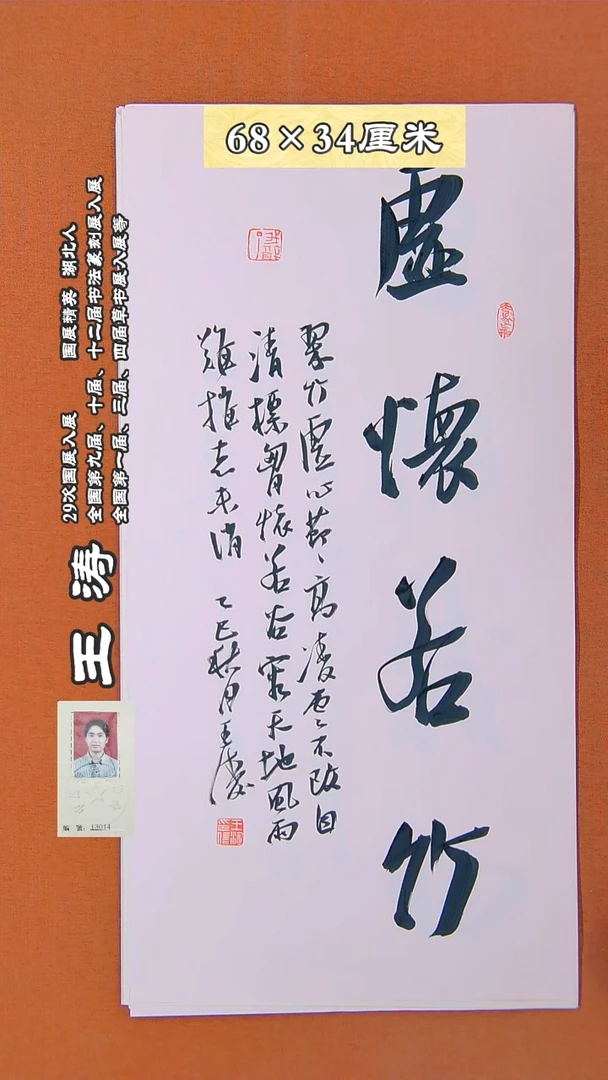 68×34厘米
虛懷若竹
翠竹虛心節〻高凌不改自
清標胸懷若谷容天地風雨
難摧志未消 乙巳秋月王涛
王涛
29次国展入展 国展精英 湖北人
全国第九届、十届、十二届书法篆刻展入展
全国第一届、三届、四届草书展入展等
13014